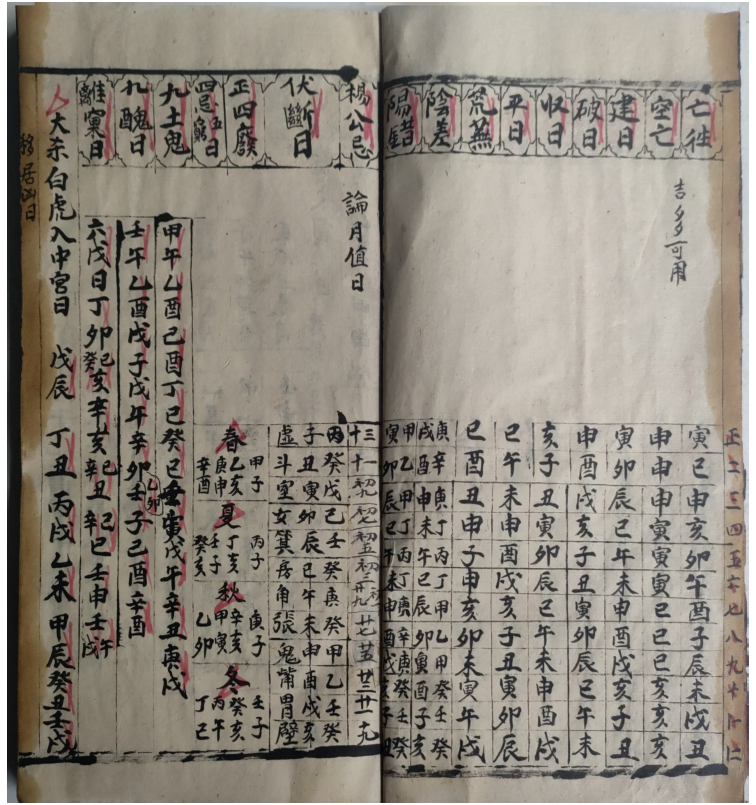 吉多可用
正二三四五六七八九十十一十二
亡往
寅巳申亥卯午酉子辰未戌丑
空亡
申申申寅寅寅巳巳巳亥亥亥
建日
寅卯辰巳午未申酉戌亥子丑
破日
申酉戌亥子丑寅卯辰巳午未
收日
亥子丑寅卯辰巳午未申酉戌
平日
巳午未申酉戌亥子丑寅卯辰
荒蕪
巳酉丑申子辰亥卯未寅午戌
陰差
庚辛庚丁丙丁甲乙甲癸壬癸
戌酉申未午巳辰卯寅丑子亥
陽错
甲乙甲丁丙丁庚辛庚癸壬癸
寅卯辰巳午未申酉戌亥子丑
楊公忌
論月值日
十三十一初九初七初五初三初一廿九廿七廿五廿三廿一十九
伏斷日
子丑寅卯辰巳午未申酉戌亥
虛斗室女箕房角張鬼觜胃壁
正四廢
四忌五窮日
甲子 丙子 庚子 壬子
春乙亥 夏丁亥 秋辛亥 冬癸亥
庚申 壬子 甲寅 丙午
辛酉 癸亥 乙卯 丁巳
九土鬼
甲午乙酉己酉丁巳癸巳壬寅戊午辛丑庚戌
九醜日
壬午乙酉戊子戊午辛卯乙卯壬子己酉辛酉
離窠日
六戊日丁卯己亥癸辛亥己丑辛己巳辛壬申壬午戌
大杀白虎入中宮日 戊辰 丁丑 丙戌 乙未 甲辰 癸丑 壬戌
移居凶日